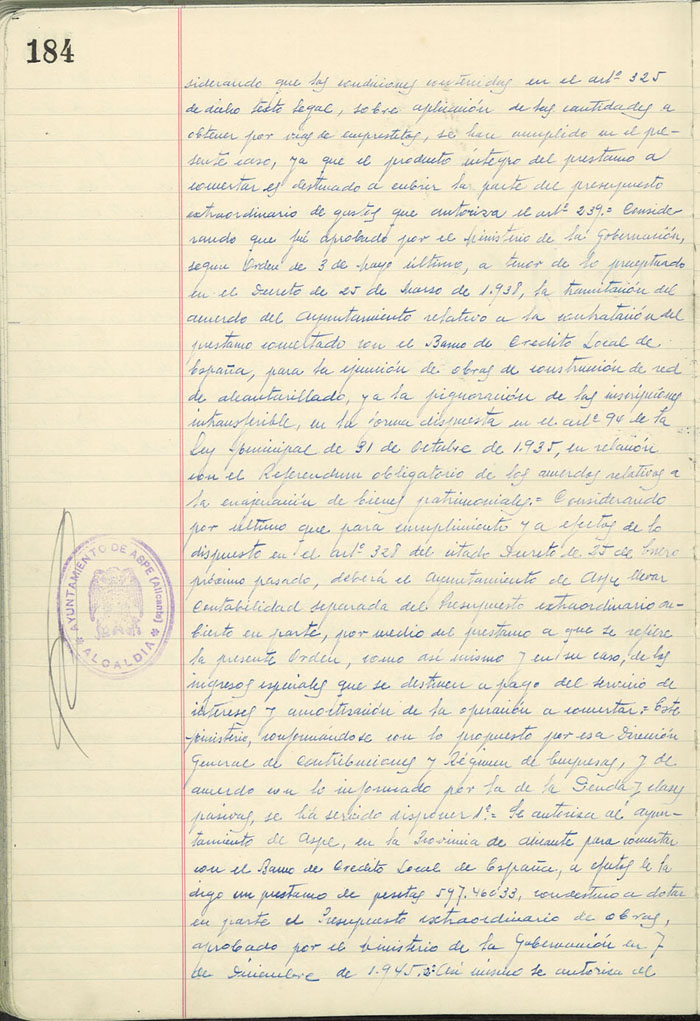 184
siderando que las condiciones contenidas en el artº 325
de dicho testo legal, sobre aplicación de las cantidades a
obtener por vias de emprestitos, se han cumplido en el pre-
sente caso, ya que el producto integro del prestamo a
concertar es destinado a cubrir la parte del presupuesto
extraordinario de gastos que autoriza el artº 239.= Conside-
rando que fué aprobado por el Ministerio de la Gobernación,
segun Orden de 3 de Mayo último, a tenor de lo preceptuado
en el Decreto de 25 de Marzo de 1.938, la tramitación del
acuerdo del Ayuntamiento relativo a la contratación del
prestamo concertado con el Banco de Credito Local de
España, para la ejecución de obras de construcción de red
de alcantarillado, y a la pignoración de las inscripciones
intransferible, en la forma dispuesta en el artº 94 de la
Ley Municipal de 31 de Octubre de 1.935, en relación
con el Referendum obligatorio de los acuerdos relativos a
la enajenación de bienes patrimoniales.= Considerando
por ultimo que para cumplimiento y a efectos de lo
dispuesto en el artº 328 del citado Decreto de 25 de Enero
próximo pasado, deberá el Ayuntamiento de Aspe llevar
Contabilidad separada del Presupuesto extraordinario cu-
bierto en parte, por medio del prestamo a que se refiere
la presente Orden, como asi mismo y en su caso, de los
ingresos especiales que se destinen a pago del servicio de
intereses y amortización de la operación a concertar.= Este
Ministerio, conformandose con lo propuesto por esa Dirección
General de Contribuciones y Régimen de Empresas, y de
acuerdo con lo informado por la de la Deuda y clases
pasivas, se há servido disponer 1º= Se autorisa al Ayun-
tamiento de Aspe, en la Provincia de Alicante para concertar
con el Banco de Credito Local de España, a efectos de la
digo un prestamo de pesetas 597.460'33, con destino a dotar
en parte el Presupuesto extraordinario de obras,
aprobado por el Ministerio de la Gobernación en 7
de Diciembre de 1.945. Asi mismo se autorisa al
AYUNTAMIENTO DE ASPE (Alicante)
* ALCALDIA *